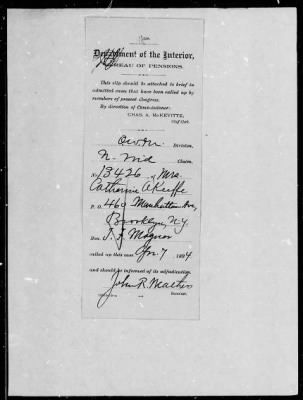 Department of the Interior,
BUREAU OF PENSIONS.
This slip should be attached to brief in
admitted cases that have been called up by
members of present Congress.
By direction of Commissioner:
CHAS. A. McKEVITTE,
Chief Clerk.
Division,
N. Claim
No. 13426 of Mrs.
Catherine O'Keeffe
P. O. 460 Manhattan Ave,
Brooklyn, N.Y.
Hon. Magner
called up this case Apr. 7, 1894
and should be informed of its adjudication.
John R.